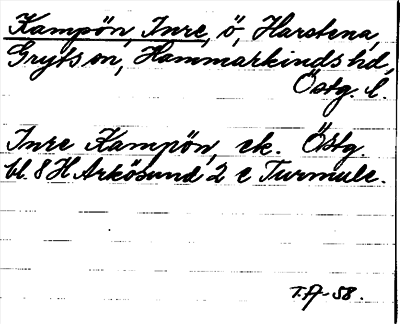 Kampön, Inre, ö, Harstena,
Gryts sn, Hammarkinds hd,
Östg. l.
Inre Kampön, ek. Östg.
bl. 8 H Arkösund 2 e Turmule.
T.A-58.